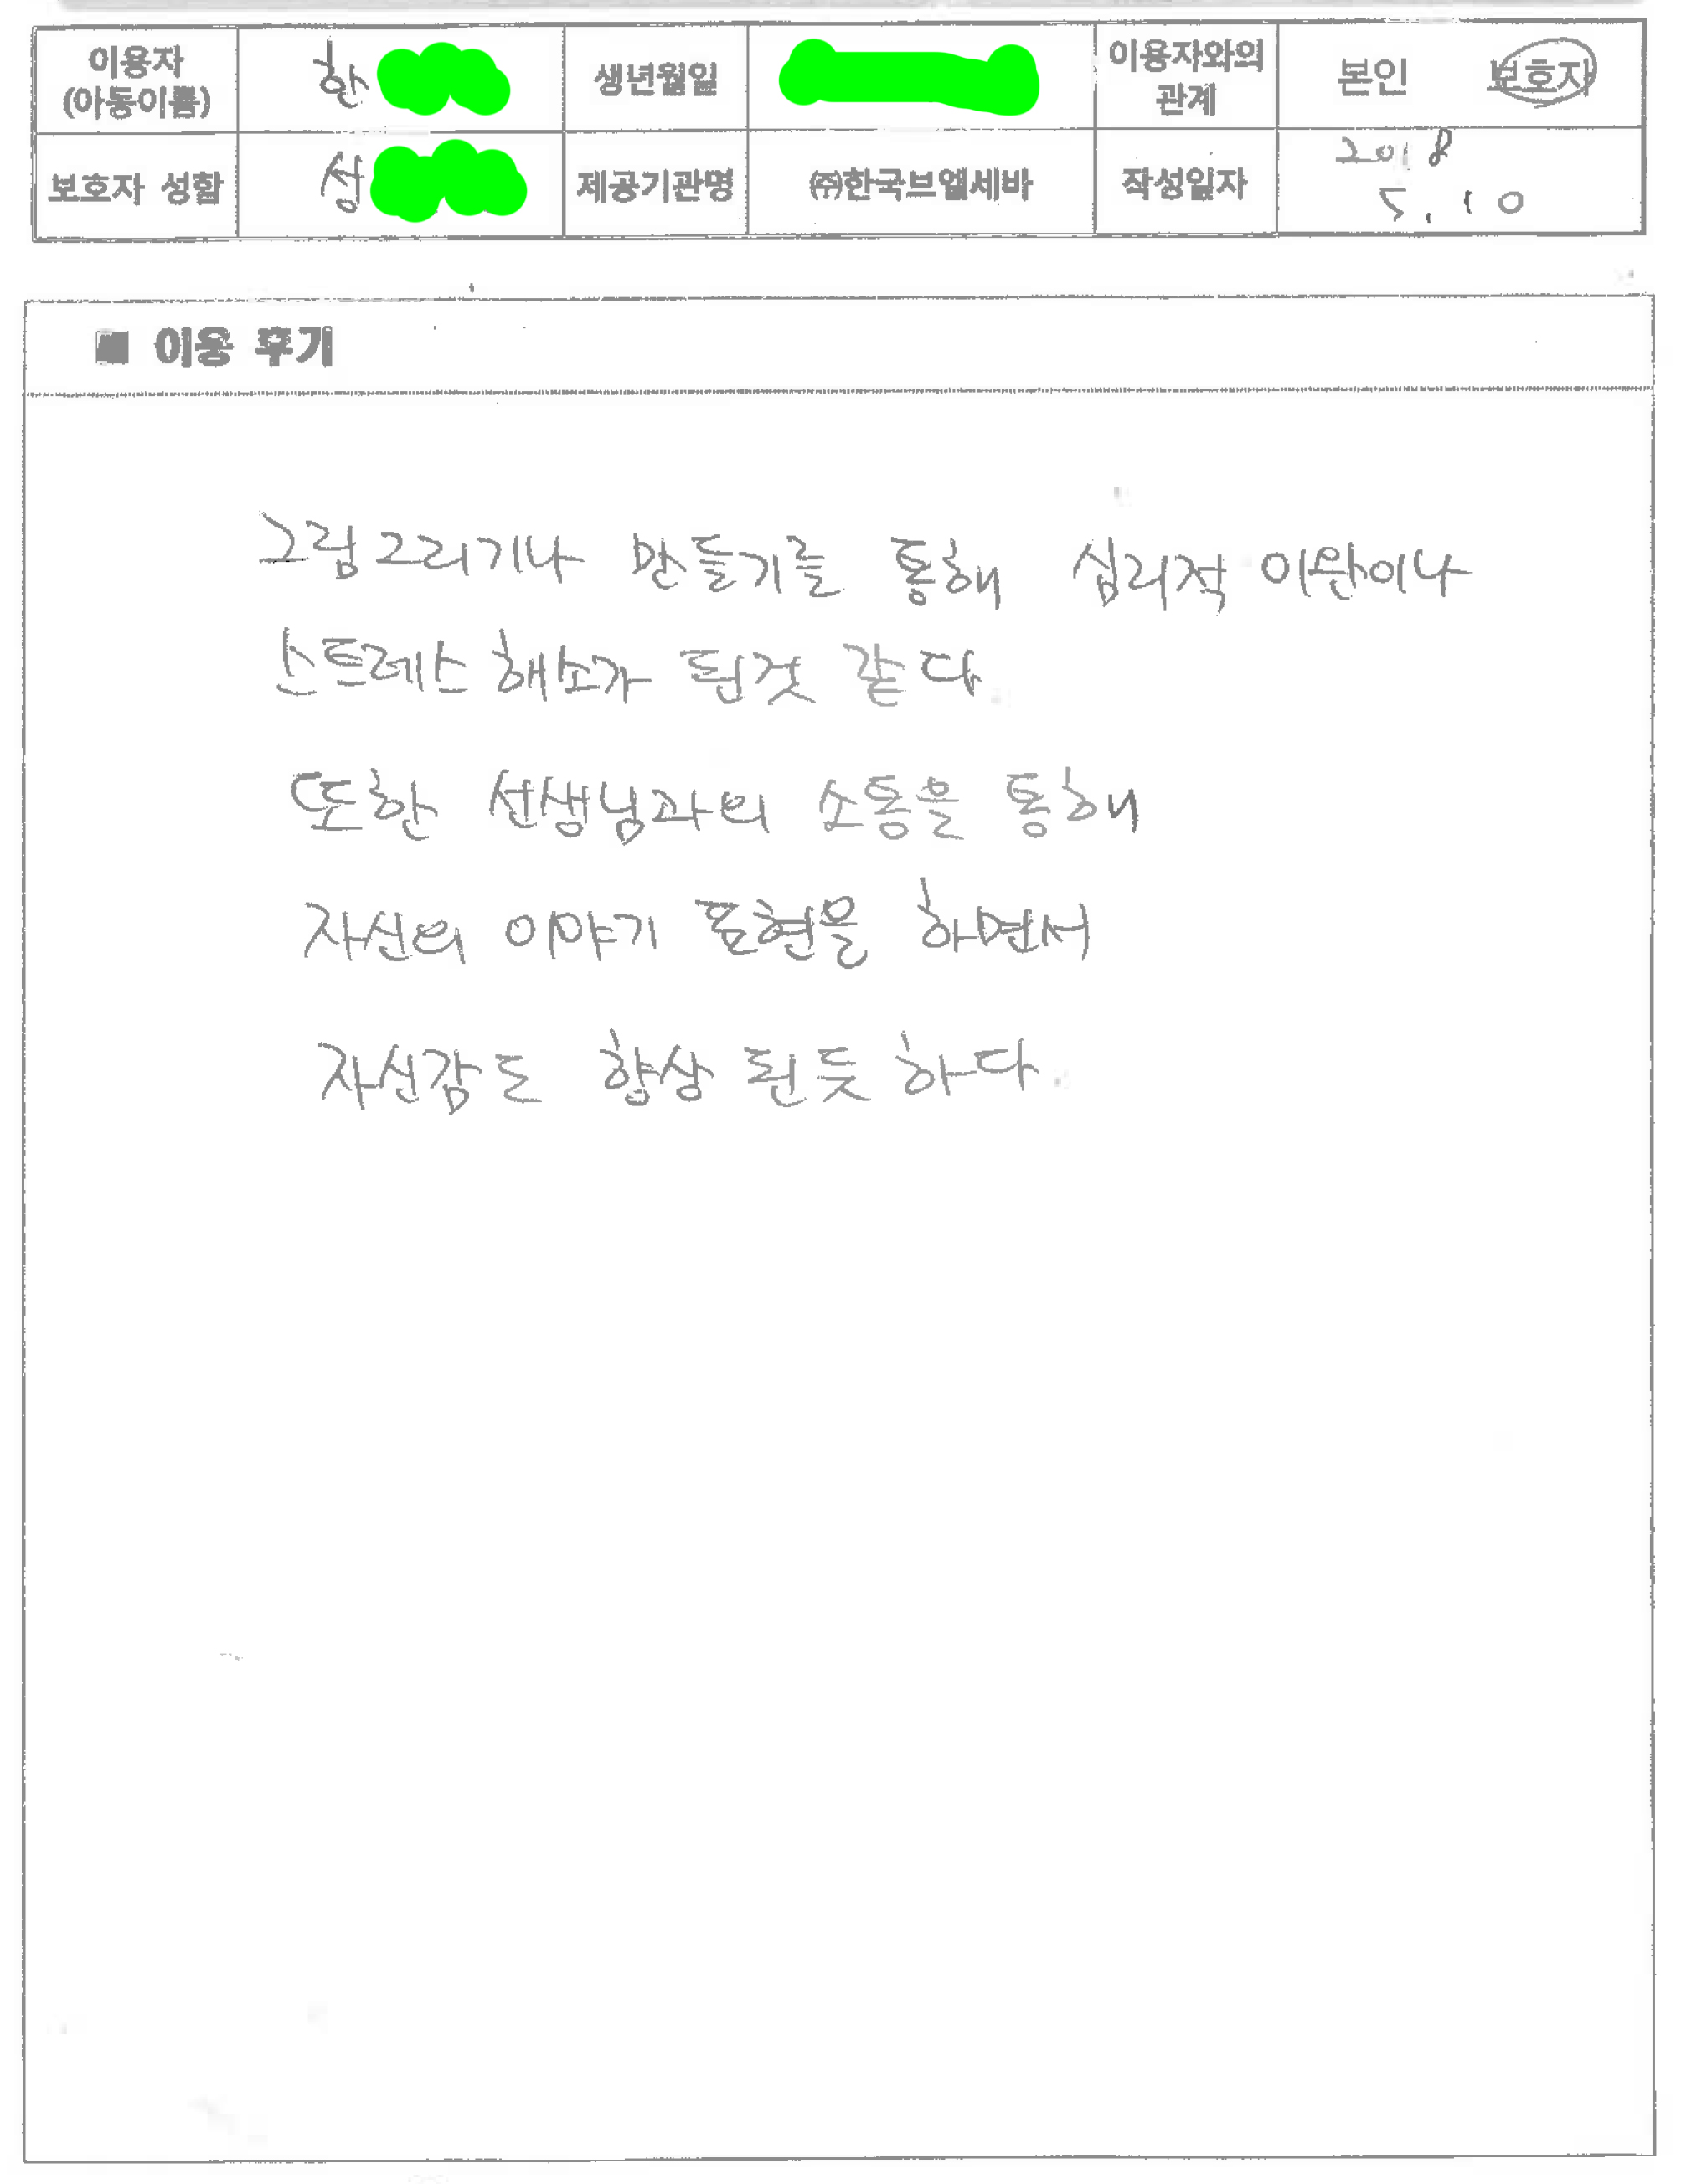 이용자 (아동이름) 한 생년월일 이용자와의 관계 본인 보호자
보호자 성함 성 제공기관명 ㈜한국브엘세바 작성일자 2018 5.10
■ 이용 후기
그림그리기나 만들기를 통해 심리적 이완이나
스트레스 해소가 된것 같다.
또한 선생님과의 소통을 통해
자신의 이야기 표현을 하면서
자신감도 향상 된듯 하다.